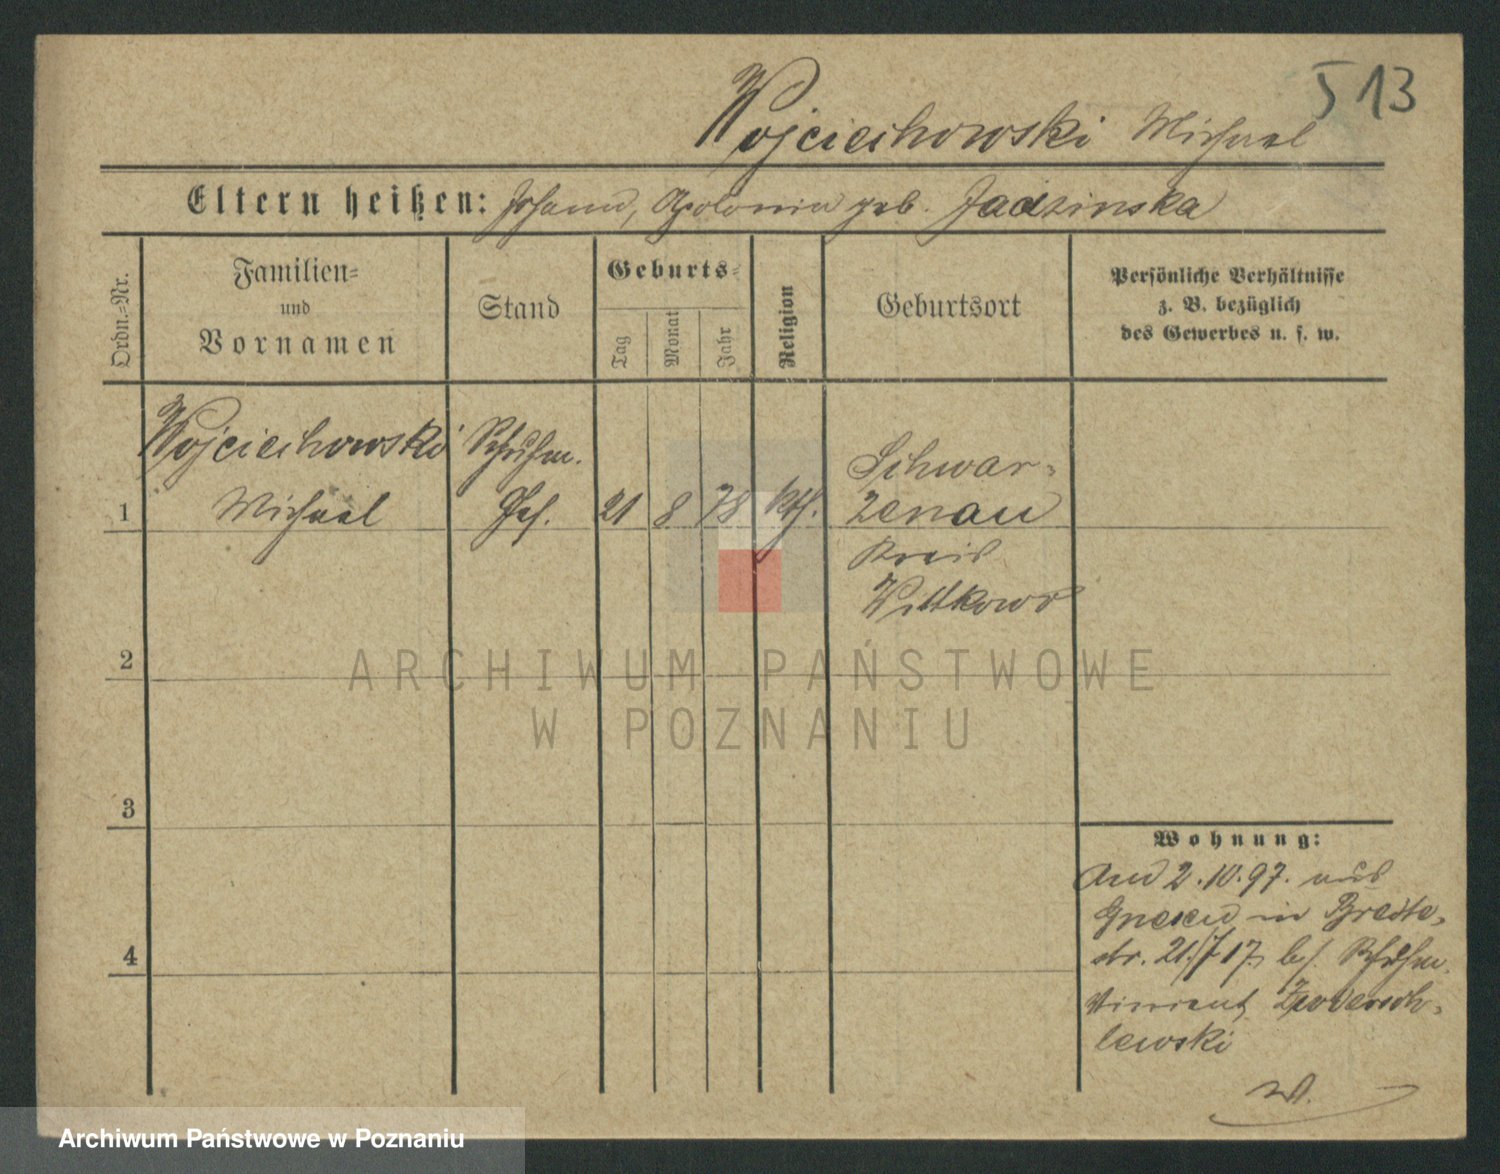 513
Wojciechowski Michael
Eltern heißen: Johann, Apolonia geb. Jadzinska
Ordn.=Nr.
Familien=
und
Vornamen
Stand
Geburts=
Tag
Monat
Jahr
Religion
Geburtsort
Persönliche Verhältnisse
z. B. bezüglich
des Gewerbes u. s. w.
Wojciechowski Schuhm. Schwar=
1 Michael Ges. 21 8 78 kth. zenau
Kreis
Wittkowo
2
ARCHIWUM PAŃSTWOWE
W POZNANIU
3
Wohnung:
2.10.97. aus
Gnesen in Breite=
str. 21. 17. b/. Schuhm.
Vincent
lewski
4
W.
Archiwum Państwowe w Poznaniu